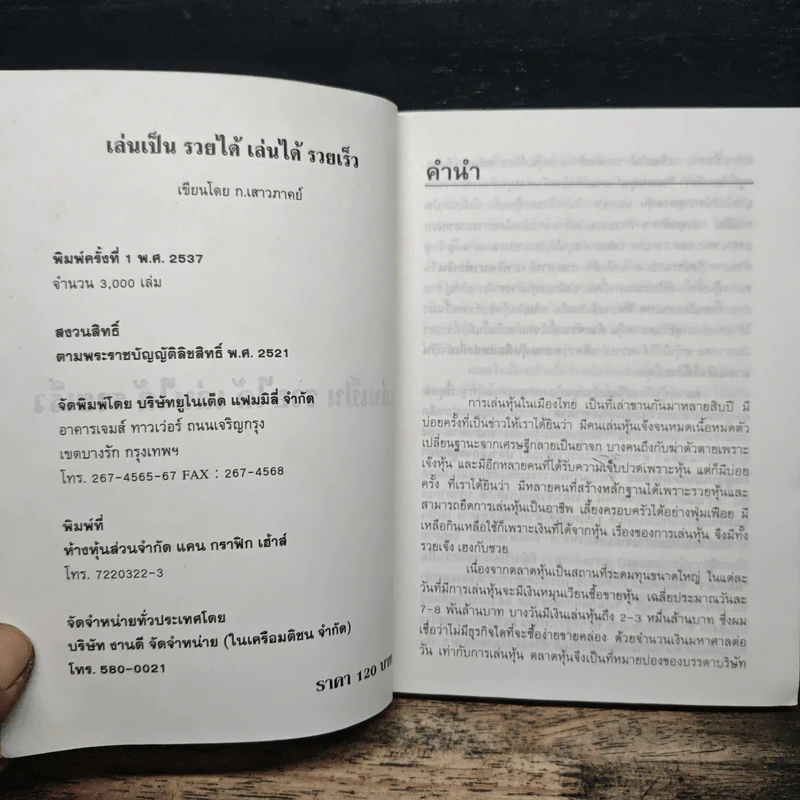 เล่นเป็น รวยได้ เล่นได้ รวยเร็ว
เขียนโดย ท.เสาวภาคย์
พิมพ์ครั้งที่ 1 พ.ศ. 2537
จำนวน 3,000 เล่ม
สงวนสิทธิ์
ตามพระราชบัญญัติลิขสิทธิ์ พ.ศ. 2521
จัดพิมพ์โดย บริษัทยูไนเต็ด แฟมมิลี่ จำกัด
อาคารเจมส์ ทาวเว่อร์ ถนนเจริญกรุง
เขตบางรัก กรุงเทพฯ
โทร. 267-4565-67 FAX : 267-4568
พิมพ์ที่
ห้างหุ้นส่วนจำกัด แคน กราฟิก เฮ้าส์
โทร. 7220322-3
จัดจำหน่ายทั่วประเทศโดย
บริษัท งานดี จัดจำหน่าย (ในเครือมติชน จำกัด)
โทร. 580-0021
ราคา 120 บาท
คำนำ
การเล่นหุ้นในเมืองไทย เป็นที่เล่าขานกันมาหลายสิบปี มี
บ่อยครั้งที่เป็นข่าวให้เราได้ยินว่า มีคนเล่นหุ้นเจ๊งจนหมดเนื้อหมดตัว
เปลี่ยนฐานะจากเศรษฐีกลายเป็นยาจก บางคนถึงกับฆ่าตัวตายเพราะ
เจ๊งหุ้น และมีอีกหลายคนที่ได้รับความเจ็บปวดเพราะหุ้น แต่ก็มีบ่อย
ครั้ง ที่เราได้ยินว่า มีหลายคนที่สร้างหลักฐานได้เพราะรวยหุ้นและ
สามารถยึดการเล่นหุ้นเป็นอาชีพ เลี้ยงครอบครัวได้อย่างฟุ่มเฟือย มี
เหลือกินเหลือใช้ก็เพราะเงินที่ได้จากหุ้น เรื่องของการเล่นหุ้น จึงมีทั้ง
รวยเจ๊ง เฮงกับซวย
เนื่องจากตลาดหุ้นเป็นสถานที่ระดมทุนขนาดใหญ่ ในแต่ละ
วันที่มีการเล่นหุ้นจะมีเงินหมุนเวียนซื้อขายหุ้น เฉลี่ยประมาณวันละ
7-8 พันล้านบาท บางวันมีเงินเล่นหุ้นถึง 2-3 หมื่นล้านบาท ซึ่งผม
เชื่อว่าไม่มีธุรกิจใดที่จะซื้อง่ายขายคล่อง ด้วยจำนวนเงินมหาศาลต่อ
วัน เท่ากับการเล่นหุ้น ตลาดหุ้นจึงเป็นที่หมายปองของบรรดาบริษัท